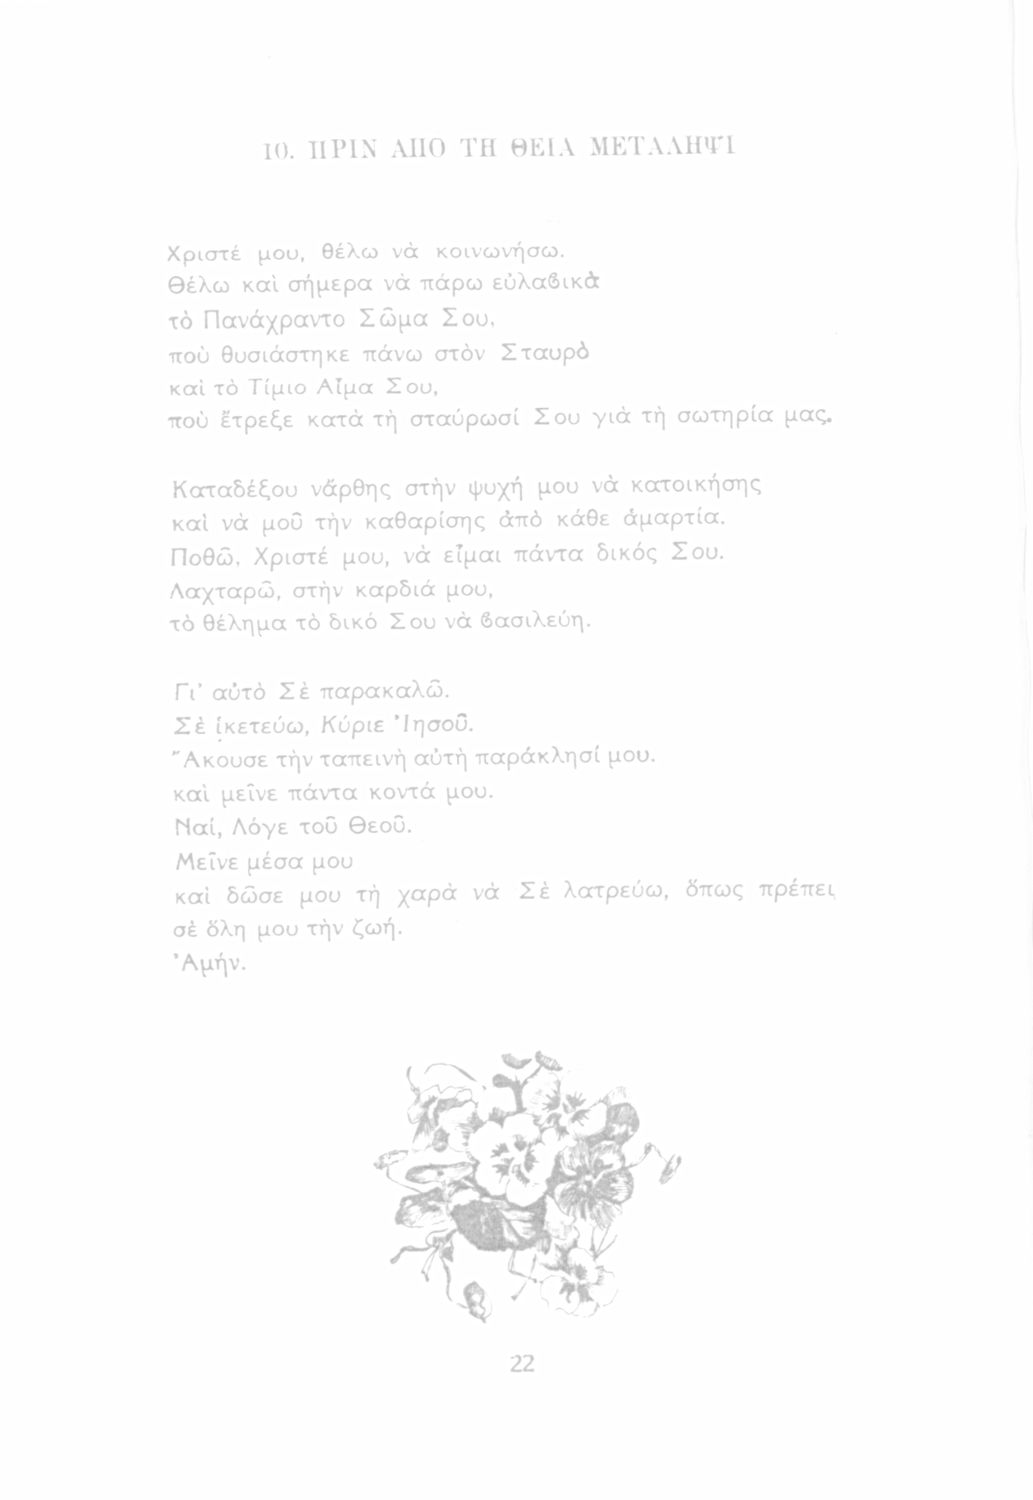 10. ΠΡΙΝ ΑΠΟ ΤΗ ΘΕΙΑ ΜΕΤΑΛΗΨΙ
Χριστέ μου, θέλω νὰ κοινωνήσω.
Θέλω καὶ σήμερα νὰ πάρω εὐλαβικὰ
τὸ Πανάχραντο Σῶμα Σου,
ποὺ θυσιάστηκε πάνω στὸν Σταυρὸ
καὶ τὸ Τίμιο Αἷμα Σου,
ποὺ ἔτρεξε κατὰ τὴ σταύρωσί Σου γιὰ τὴ σωτηρία μας.
Καταδέξου νἄρθης στὴν ψυχή μου νὰ κατοικήσης
καὶ νὰ μοῦ τὴν καθαρίσης ἀπὸ κάθε ἁμαρτία.
Ποθῶ, Χριστέ μου, νὰ εἶμαι πάντα δικός Σου.
Λαχταρῶ, στὴν καρδιά μου,
τὸ θέλημα τὸ δικό Σου νὰ βασιλεύη.
Γι' αὐτὸ Σὲ παρακαλῶ.
Σὲ ἱκετεύω, Κύριε Ἰησοῦ.
Ἄκουσε τὴν ταπεινὴ αὐτὴ παράκλησί μου.
καὶ μεῖνε πάντα κοντά μου.
Ναί, Λόγε τοῦ Θεοῦ.
Μεῖνε μέσα μου
καὶ δῶσε μου τὴ χαρὰ νὰ Σὲ λατρεύω, ὅπως πρέπει,
σὲ ὅλη μου τὴν ζωή.
Ἀμήν.
22